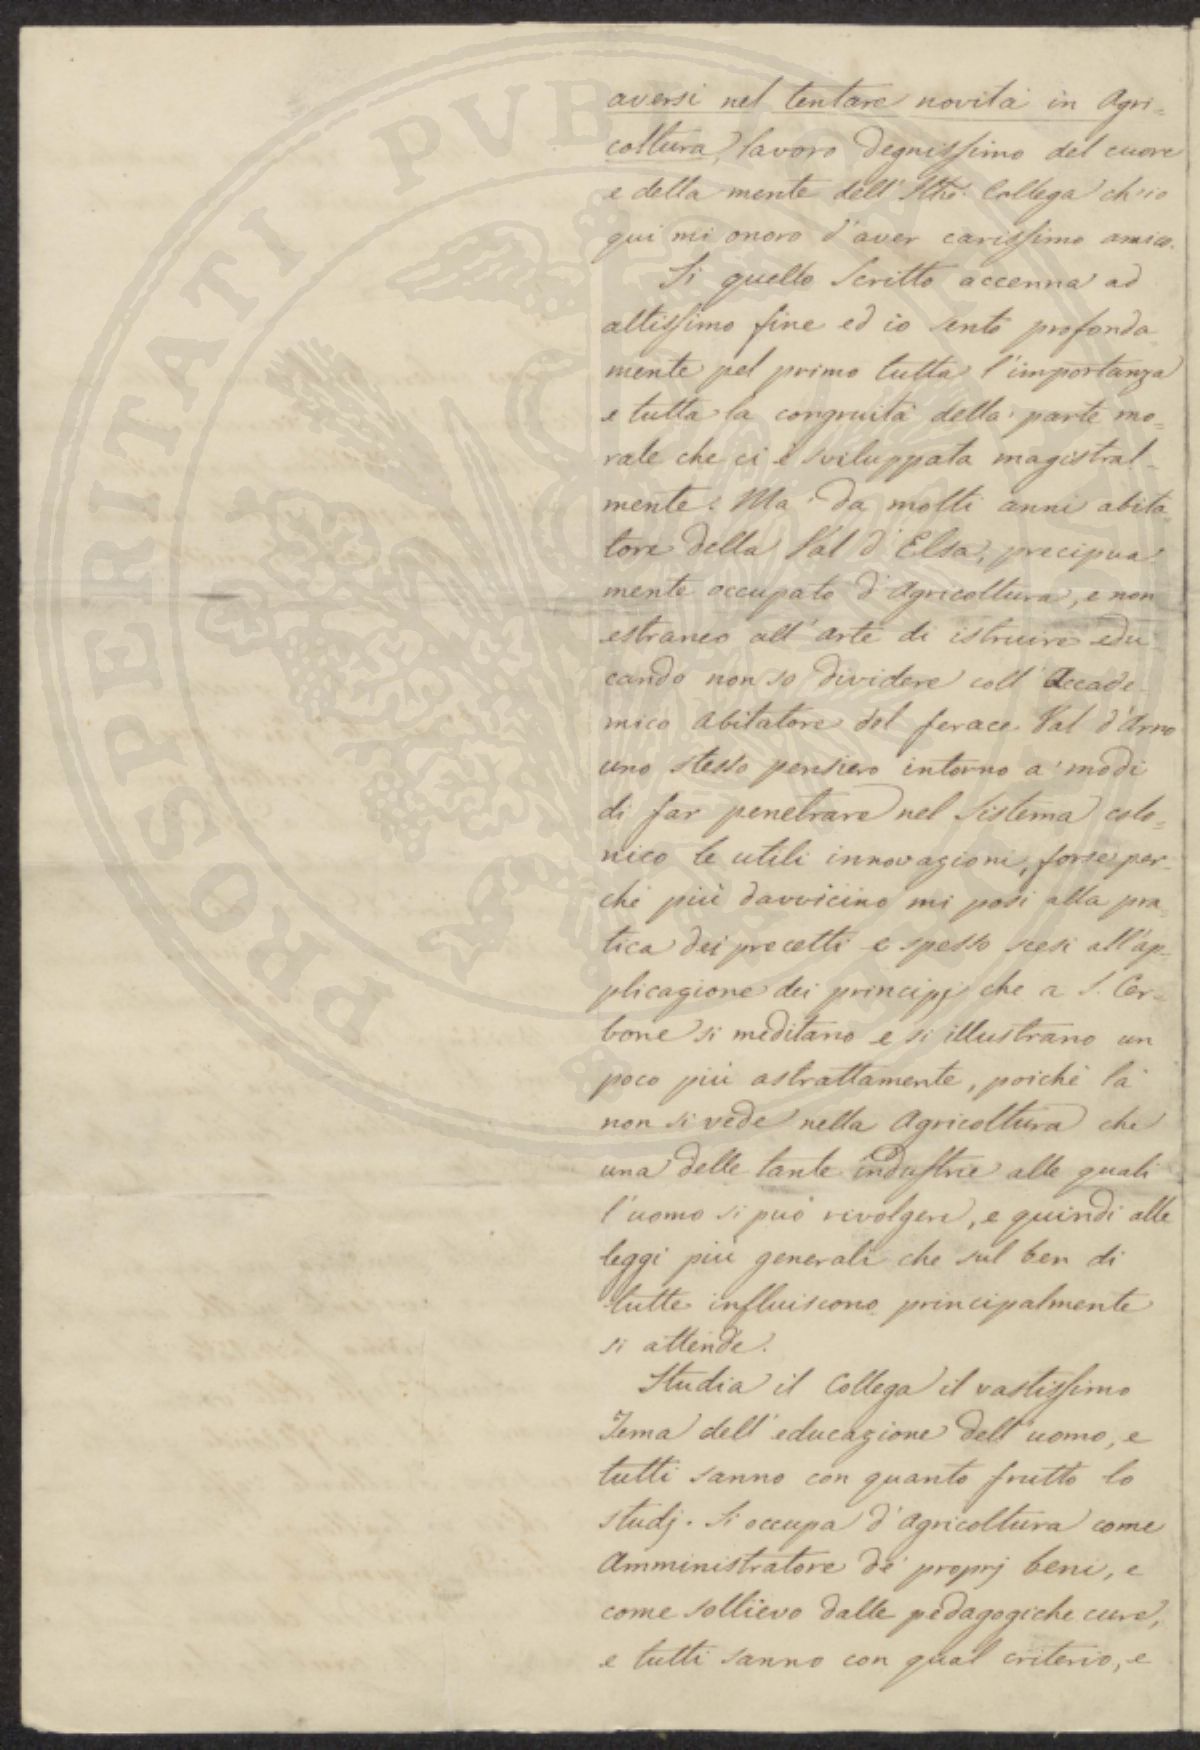 aversi nel tentare novità in Agri=
coltura, lavoro degnissimo del cuore
e della mente dell' Illṡ̃o Collega ch'io
qui mi onoro d'aver carissimo amico.
Si quello Scritto accenna ad
altissimo fine ed io sento profonda
mente pel primo tutta l'importanza
e tutta la congruità della parte mo=
rale che ci è sviluppata magistral-
mente. Ma da molti anni abita
tore della Val d'Elsa, precipua-
mente occupato d'Agricoltura, e non
estraneo all'arte di istruire edu-
cando non so dividere coll'Accade-
mico Abitatore del ferace Val d'Arno
uno stesso pensiero intorno a' modi
di far penetrare nel Sistema colo=
nico le utili innovazioni, forse per-
chè più davvicino mi posi alla pra=
tica dei precetti e spesso scesi all'ap=
plicazione dei principj che a S. Cer=
bone si meditano e si illustrano un
poco più astrattamente, poichè là
non si vede nella Agricoltura che
una delle tante industrie alle quali
l'uomo si può rivolgere, e quindi alle
leggi più generali che sul ben di
tutte influiscono principalmente
si attende.
Studia il Collega il vastissimo
Tema dell'educazione dell'uomo, e
tutti sanno con quanto frutto lo
studj. Si occupa d'Agricoltura come
Amministratore de' proprj beni, e
come sollievo dalle pedagogiche cure,
e tutti sanno con qual criterio, e
PROSPERITATI PVBLICAE